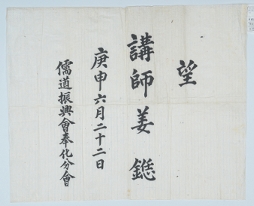 望
講師姜鎹
庚申六月二十二日
儒道振興會奉化分會